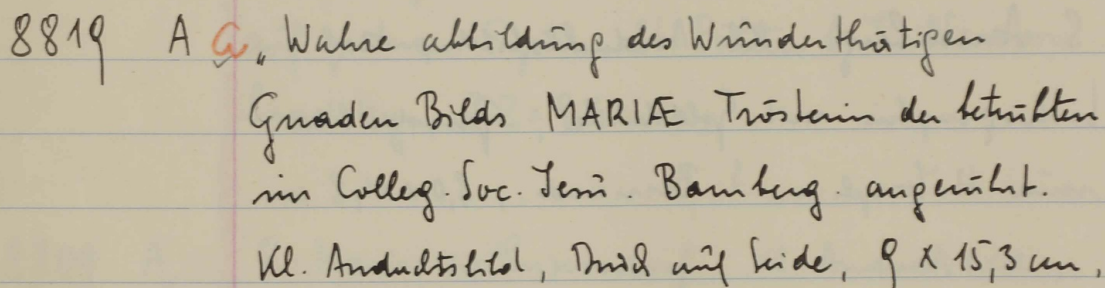 8819 A G „Wahre abbildung des Wunderthätigen
Gnaden Bilds MARIÆ Trösterin der betrübten
im Colleg. Soc. Jesu. Bamberg. angerührt.
Kl. Andachtsbild, Druck auf Seide, 9 x 15,3 cm,